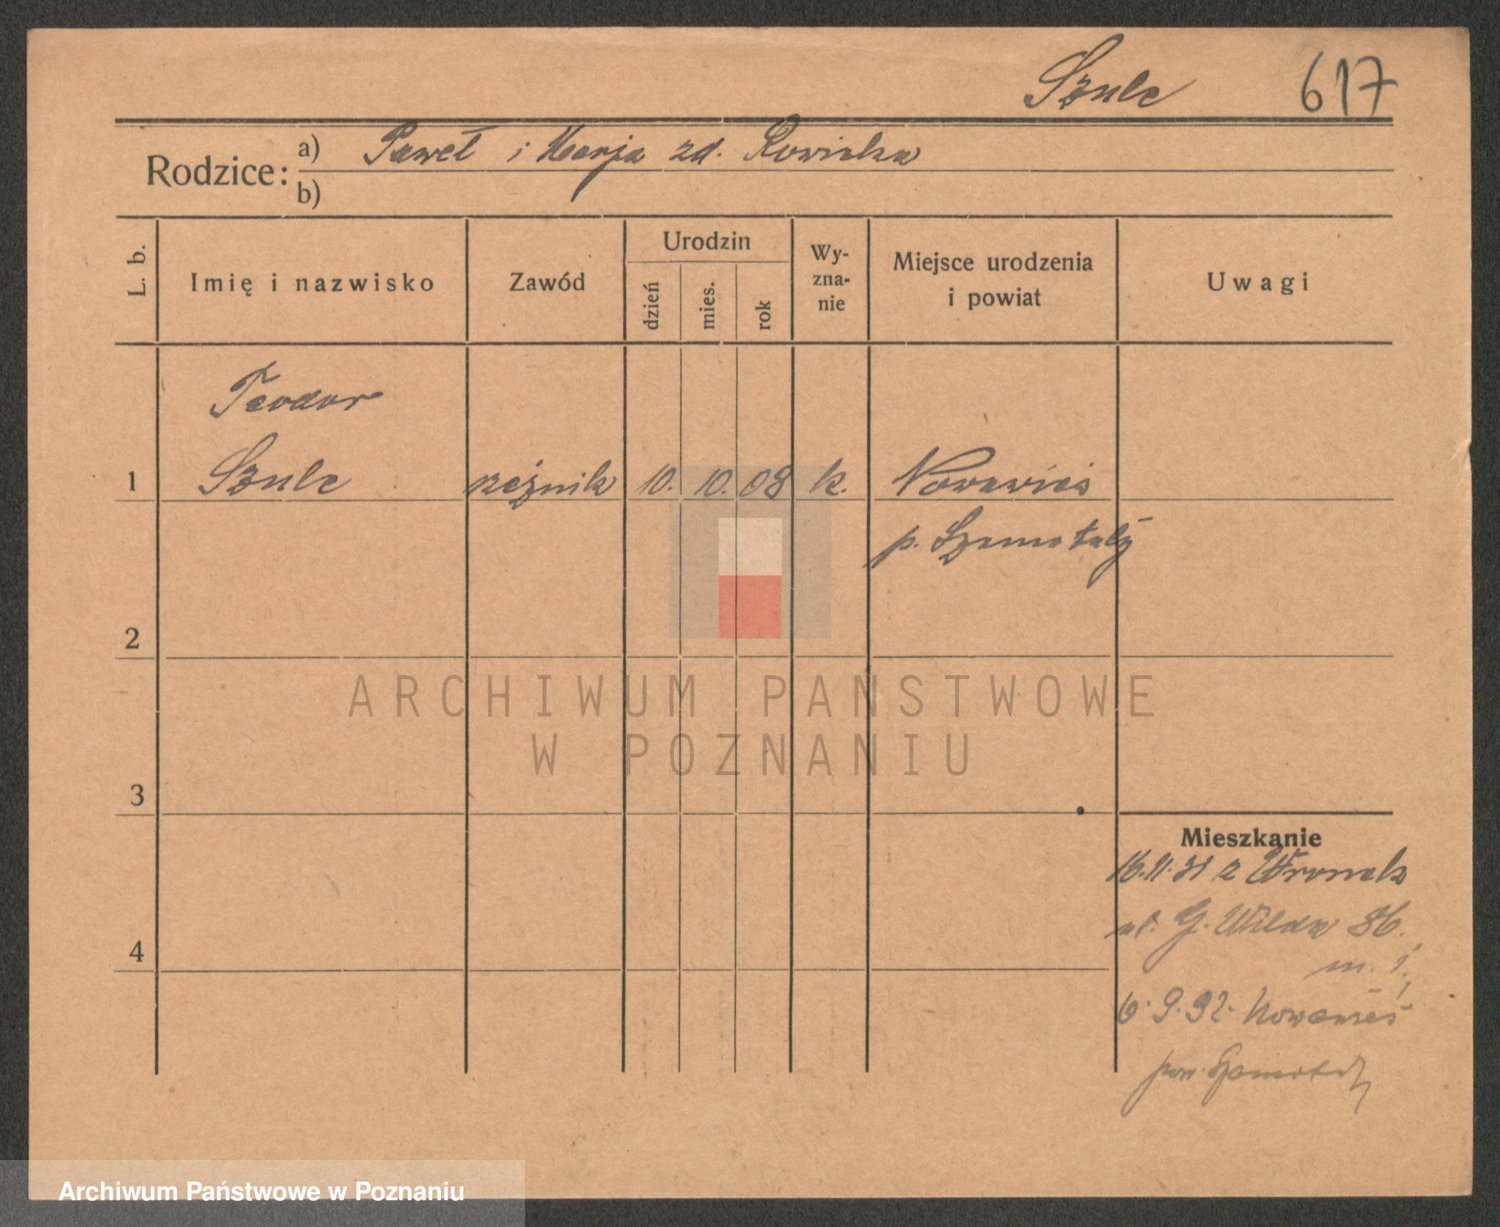 Szulc 617
Rodzice: a) Paweł i Marja zd. Rowicka
b)
L. b. Imię i nazwisko Zawód Urodzin dzień mies. rok Wy-zna-nie Miejsce urodzenia i powiat Uwagi
Teodor
1 Szulc rzeźnik 10. 10. 08 k. Nowawieś
p. Szamotuły
2
ARCHIWUM PAŃSTWOWE
W POZNANIU
3
Mieszkanie
16.11.31 z Wronek
4 ul. G. Wilda 86.
m. 1.
6.9.32. Nowawieś
pow. Szamotuły
Archiwum Państwowe w Poznaniu